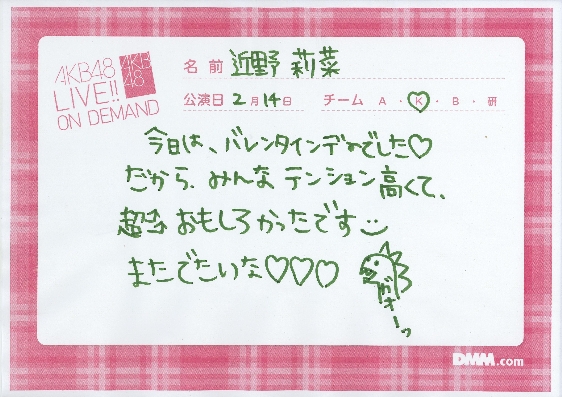 AKB48
LIVE!!
ON DEMAND
AKB
48
名前 近野 莉菜
公演日 2月14日 チーム A・K・B・研
今日は、バレンタインデーでした♡
だから、みんな テンション高くて、
超 おもしろかったです
またでたいな♡♡♡
ガオーッ
DMM.com